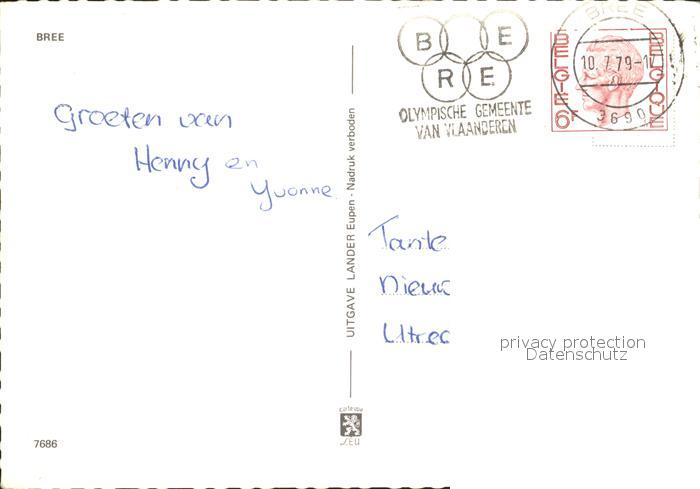 BREE
B E
R E
OLYMPISCHE GEMEENTE
VAN VLAANDEREN
BREE
10.7.79-17
3690
BELGIE
BELGIQUE
6F
Groeten van
Henny en
Yvonne
UITGAVE LANDER Eupen - Nadruk verboden
Tante
Nieuw
Utrec
privacy protection
Datenschutz
7686